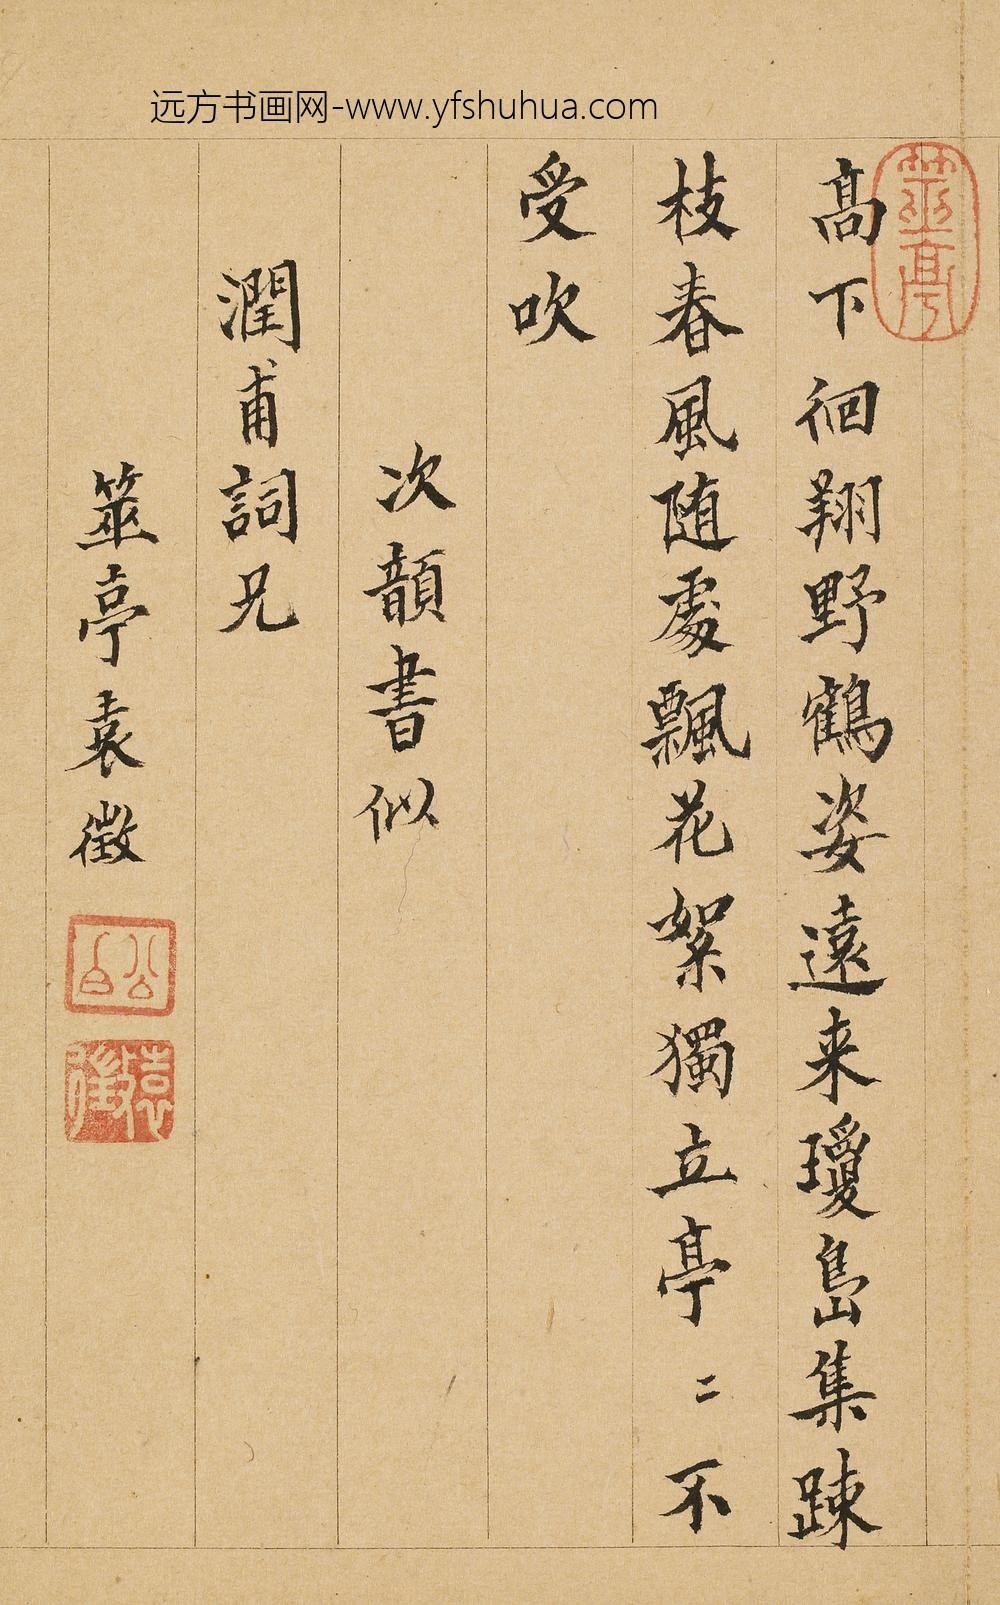 远方书画网-www.yfshuhua.com
筮亭
高下徊翔野鶴姿遠来瓊島集踈
枝春風随處飄花絮獨立亭〻不
受吹
次韻書似
潤甫詞兄
筮亭袁徵
公白
袁徵